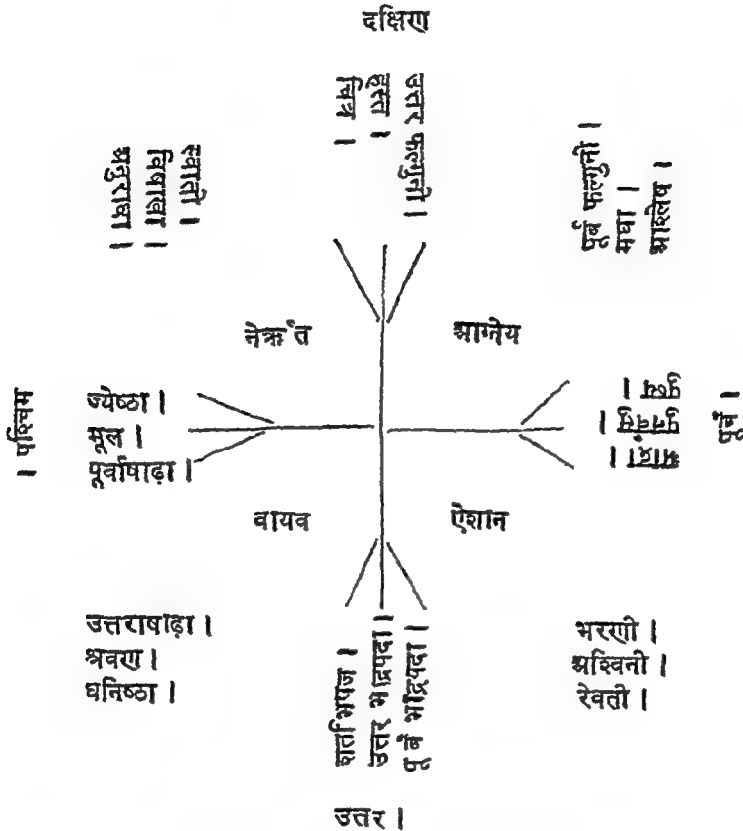 दक्षिण
उत्तर फल्गुनी ।
हस्ता ।
चित्र ।
स्वाती ।
विशाखा ।
अनुराधा ।
पूर्व फल्गुनी ।
मघा ।
आश्लेष ।
नैऋॅत
आग्नेय
। पश्चिम
ज्येष्ठा ।
मूल ।
पूर्वाषाढ़ा ।
पुष्य ।
पुनर्वसु ।
आर्द्रा ।
पूर्व ।
वायव
ऐशान
उत्तराषाढ़ा ।
श्रवण ।
धनिष्ठा ।
शतभिषज ।
उत्तर भाद्रपदा ।
पूर्व भाद्रपदा ।
भरणी ।
अश्विनी ।
रेवती ।
उत्तर ।